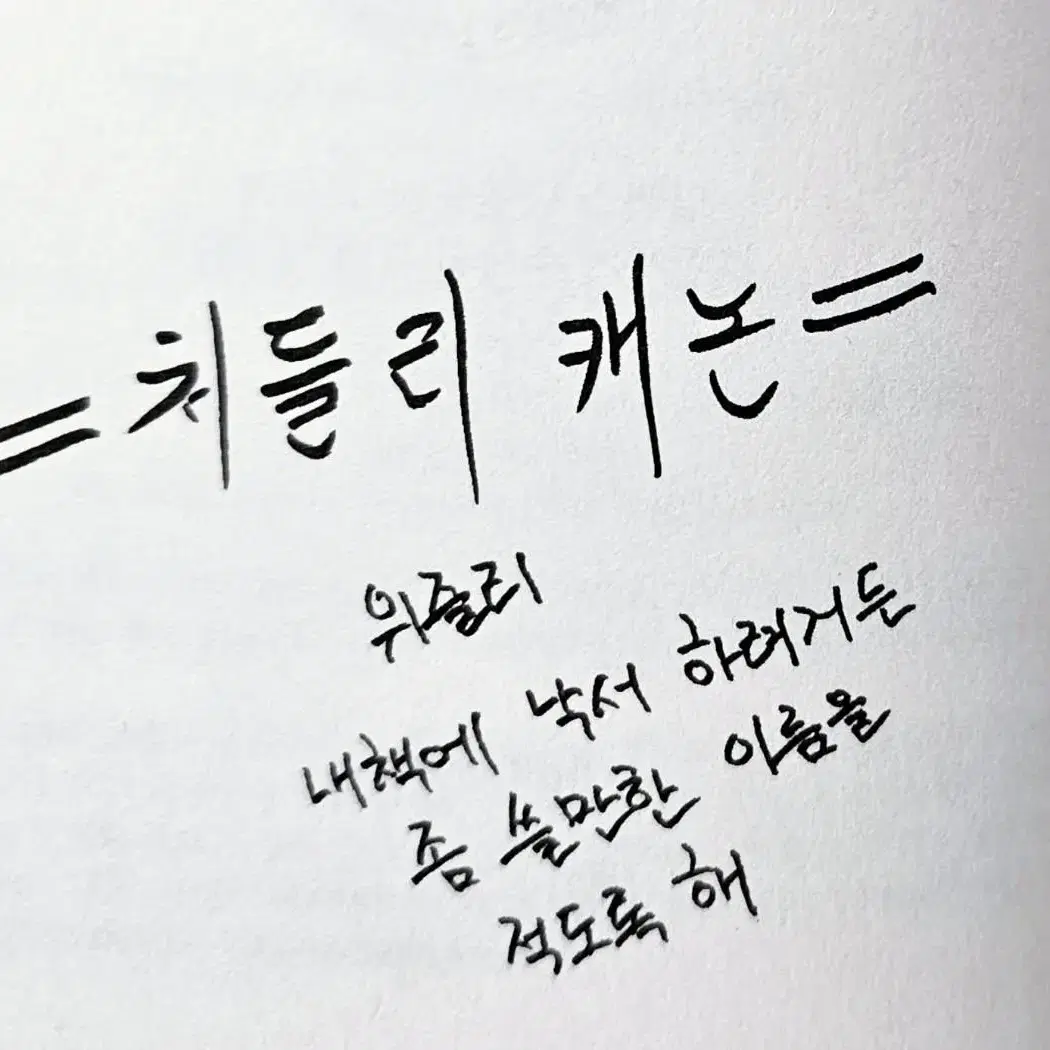 = 처들리 캐논 =
위즐리
내책에 낙서 하려거든
좀 쓸만한 이름을
적도록 해